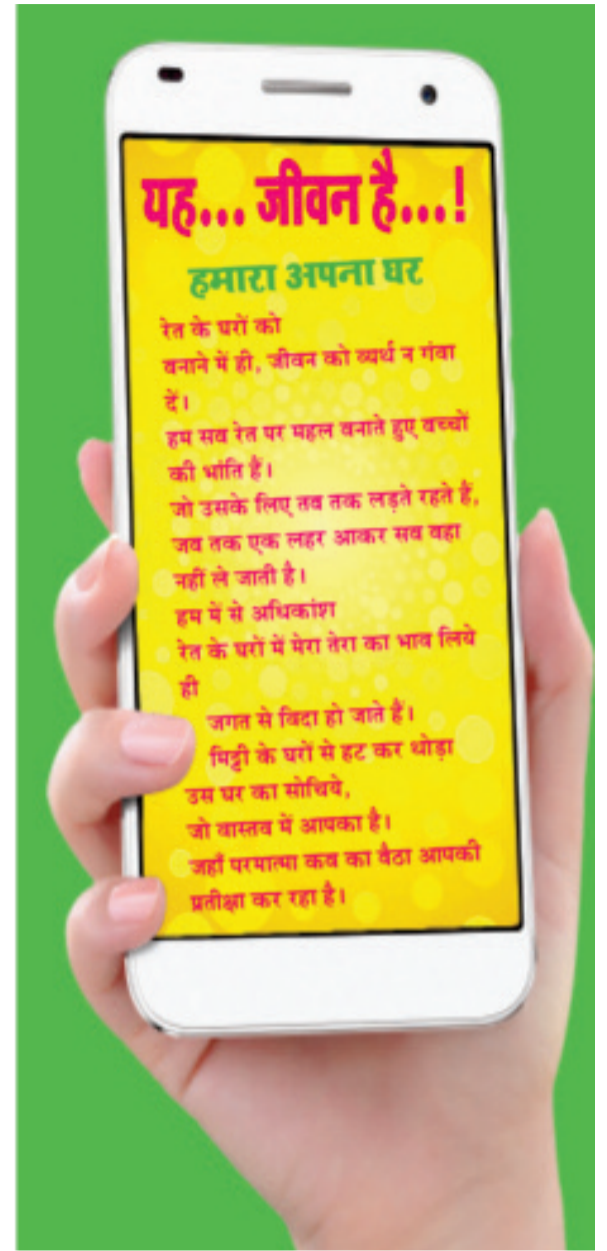 यह... जीवन है...!
हमारा अपना घर
रेत के घरों को
बनाने में ही, जीवन को व्यर्थ न गंवा
दें।
हम सब रेत पर महल बनाते हुए बच्चों
की भांति हैं।
जो उसके लिए तब तक लड़ते रहते है,
जब तक एक लहर आकर सब वहा
नहीं ले जाती है।
हम में से अधिकांश
रेत के घरों में मेरा तेरा का भाव लिये
ही
जगत से विदा हो जाते हैं।
मिट्टी के घरों से हट कर थोड़ा
उस घर का सोचिये,
जो वास्तव में आपका है।
जहाँ परमात्मा कब का बैठा आपकी
प्रतीक्षा कर रहा है।